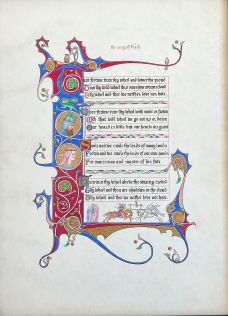 the song of Enid
Turn Fortune turn thy wheel and lower the proud
Turn thy wild wheel thro' sunshine storm and cloud
Thy wheel and thee we neither love nor hate.
Turn Fortune turn thy wheel with smile or frown
With that wild wheel we go not up or down
Our hoard is little but our hearts are great
Smile and we smile the lords of many lands
Frown and we smile the lords of our own hands
For man is man and master of his fate
Turn turn thy wheel above the staring crowd
Thy wheel and thou are shadows in the cloud
Thy wheel and thee we neither love nor hate.